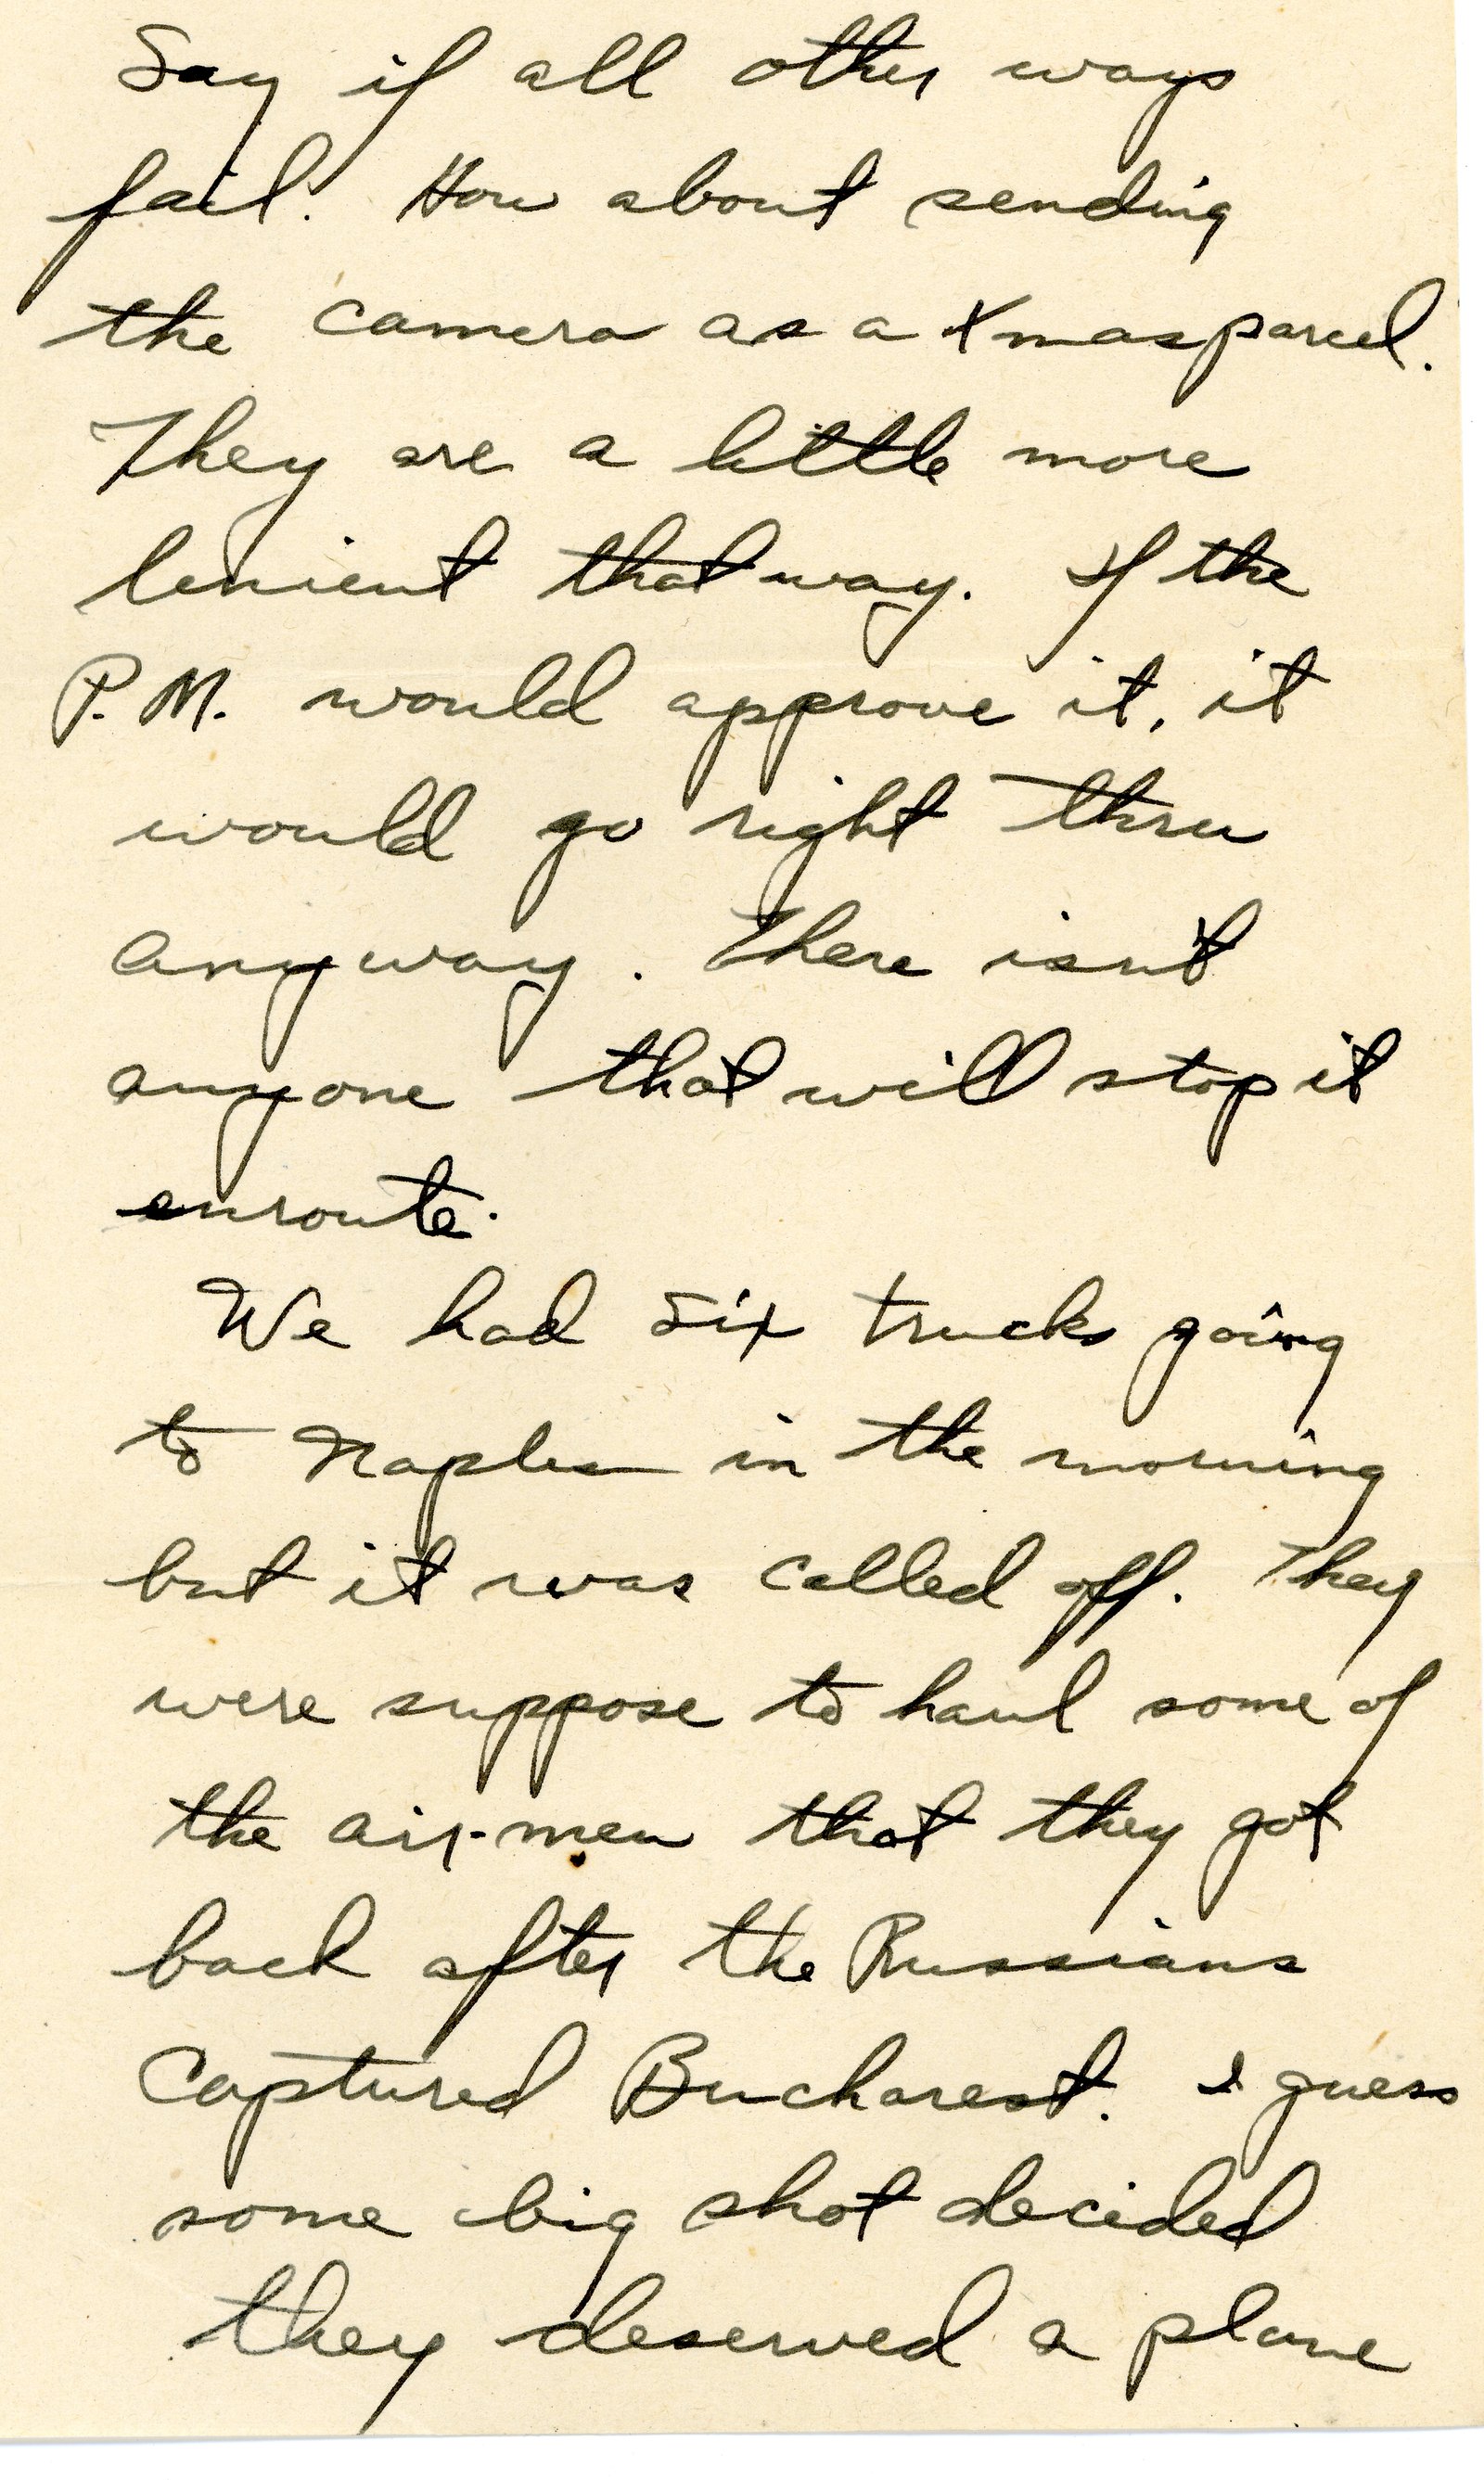 Say if all other ways
fail. How about sending
the camera as a Xmas parcel.
They are a little more
lenient that way. If the
P.M. would approve it, it
would go right thru
anyway. There isn't
anyone that will stop it
enroute.
We had six trucks going
to Naples in the morning
but it was called off. They
were suppose to haul some of
the air-men that they got
back after the Russians
Captured Bucharest. I guess
some big shot decided
they deserved a plane